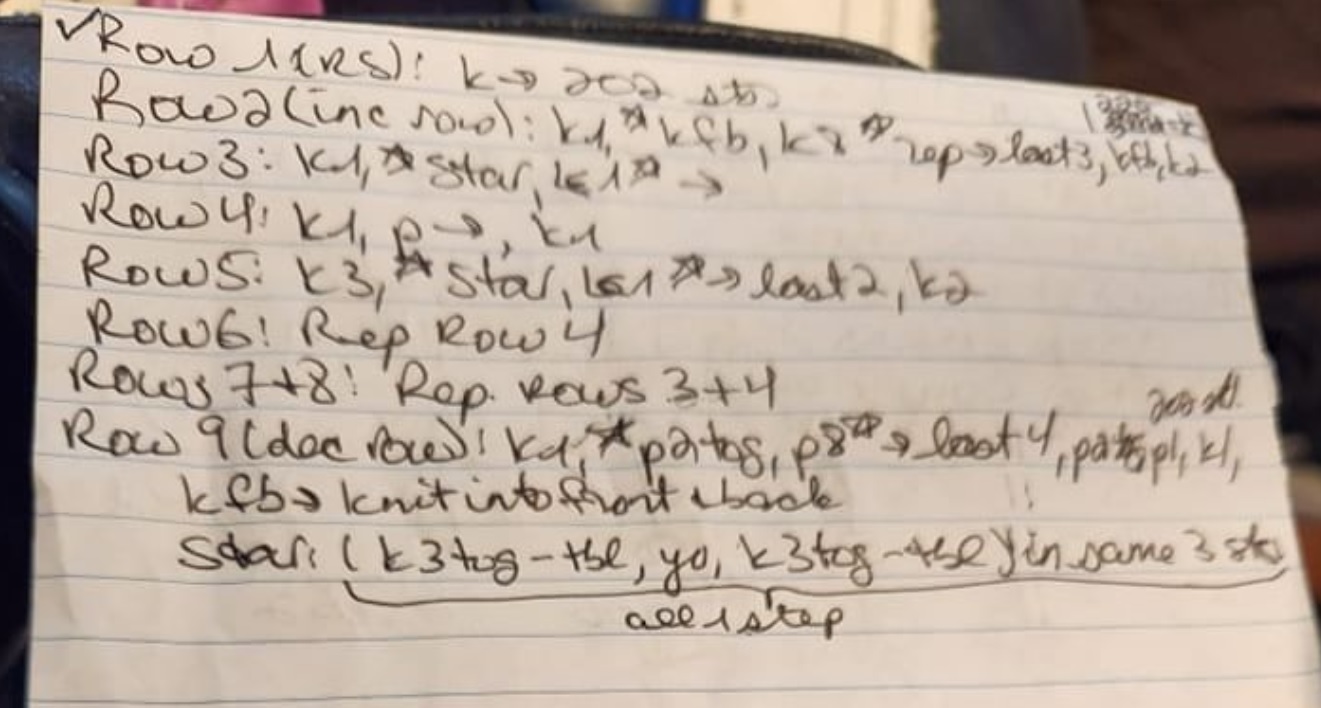 ✓Row 1(RS): k → 202 sts
Row2(inc row): k1, *kfb, k8* rep→last3, kfb, k2
Row3: k1, *star, k1* →
Row4: k1, p→, k1
Row5: k3, *star, k1*→ last2, k2
Row6: Rep Row 4
Rows 7+8: Rep. Rows 3+4
Row 9(dec row): k1, *p2tog, p8*→ last4, p2tog, p1, k1,
kfb→ knit into front + back
Star: (k3tog-tbl, yo, k3tog-tbl) in same 3 sts
all 1 step